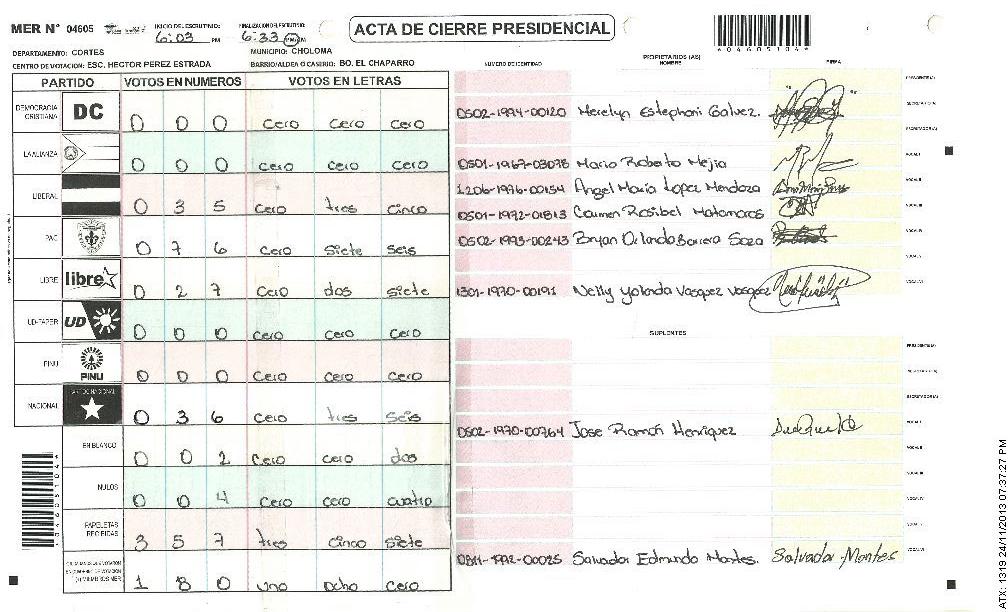 MER N° 04605
INICIO DEL ESCRUTINIO: 6:03 PM
FINALIZACION DEL ESCRUTINIO: 6:33 PM
ACTA DE CIERRE PRESIDENCIAL
*04605104*
DEPARTAMENTO: CORTES
MUNICIPIO: CHOLOMA
CENTRO DE VOTACION: ESC. HECTOR PEREZ ESTRADA
BARRIO/ALDEA O CASERIO: BO. EL CHAPARRO
PARTIDO VOTOS EN NUMEROS VOTOS EN LETRAS
DEMOCRACIA CRISTIANA DC 0 0 0 cero cero cero
LA ALIANZA 0 0 0 cero cero cero
LIBERAL 0 3 5 cero tres cinco
PAC 0 7 6 cero siete seis
LIBRE libre 0 2 7 cero dos siete
UD-FAPER UD 0 0 0 cero cero cero
PINU PINU 0 0 0 cero cero cero
NACIONAL PARTIDO NACIONAL 0 3 6 cero tres seis
EN BLANCO 0 0 2 cero cero dos
NULOS 0 0 4 cero cero cuatro
PAPELETAS RECIBIDAS 3 5 7 tres cinco siete
1 8 0 uno ocho cero
NUMERO DE IDENTIDAD
PROPIETARIOS (AS)
NOMBRE
FIRMA
PRESIDENTE(A)
SECRETARIO(A)
0502-1994-00120 Merelyn Estephani Galvez.
VOCAL I
0501-1967-03078 Mario Roberto Mejia
VOCAL II
1206-1976-00154 Angel Maria Lopez Mendoza
VOCAL III
0501-1972-01813 Carmen Rosibel Matamoros
VOCAL IV
0502-1993-00243 Bryan Orlando Barrera Soza
VOCAL V
VOCAL VI
1301-1970-00191 Nelly Yolanda Vasquez Vasquez
SUPLENTES
PRESIDENTE(A)
SECRETARIO(A)
VOCAL I
0502-1970-00764 Jose Ramón Henriquez
VOCAL II
VOCAL III
VOCAL IV
VOCAL V
VOCAL VI
0811-1992-00025 Salvador Edmundo Montes. Salvador Montes
ATX: 1319 24/11/2013 07:37:27 PM